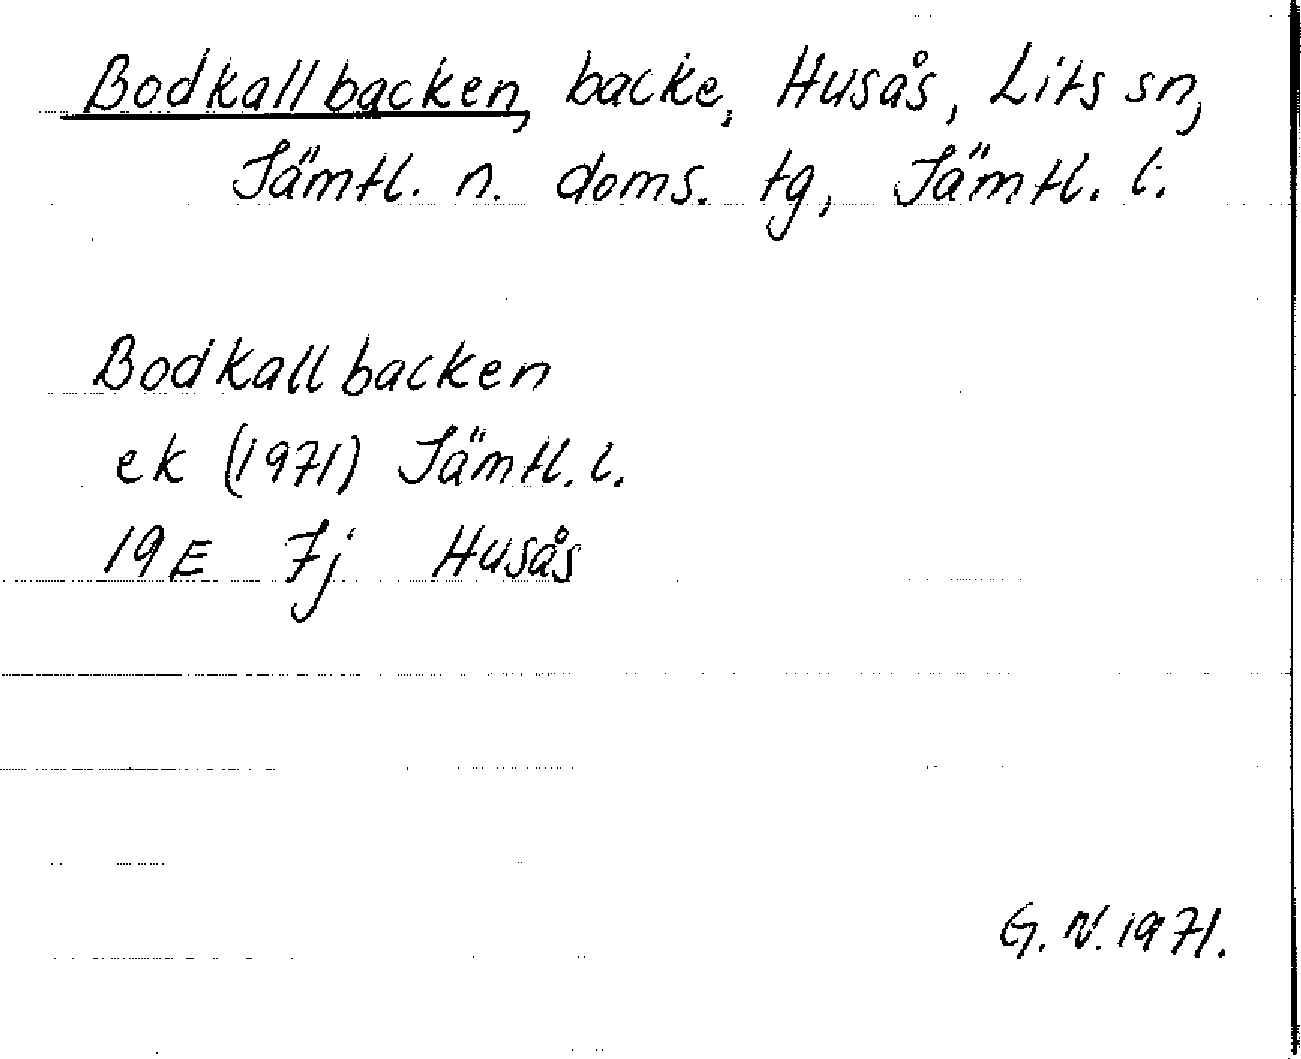 Bodkallbacken, backe, Husås, Lits sn,
Jämtl. n. doms. tg, Jämtl. l.
Bodkallbacken
ek (1971) Jämtl. l.
19E 7j Husås
G. N. 1971.